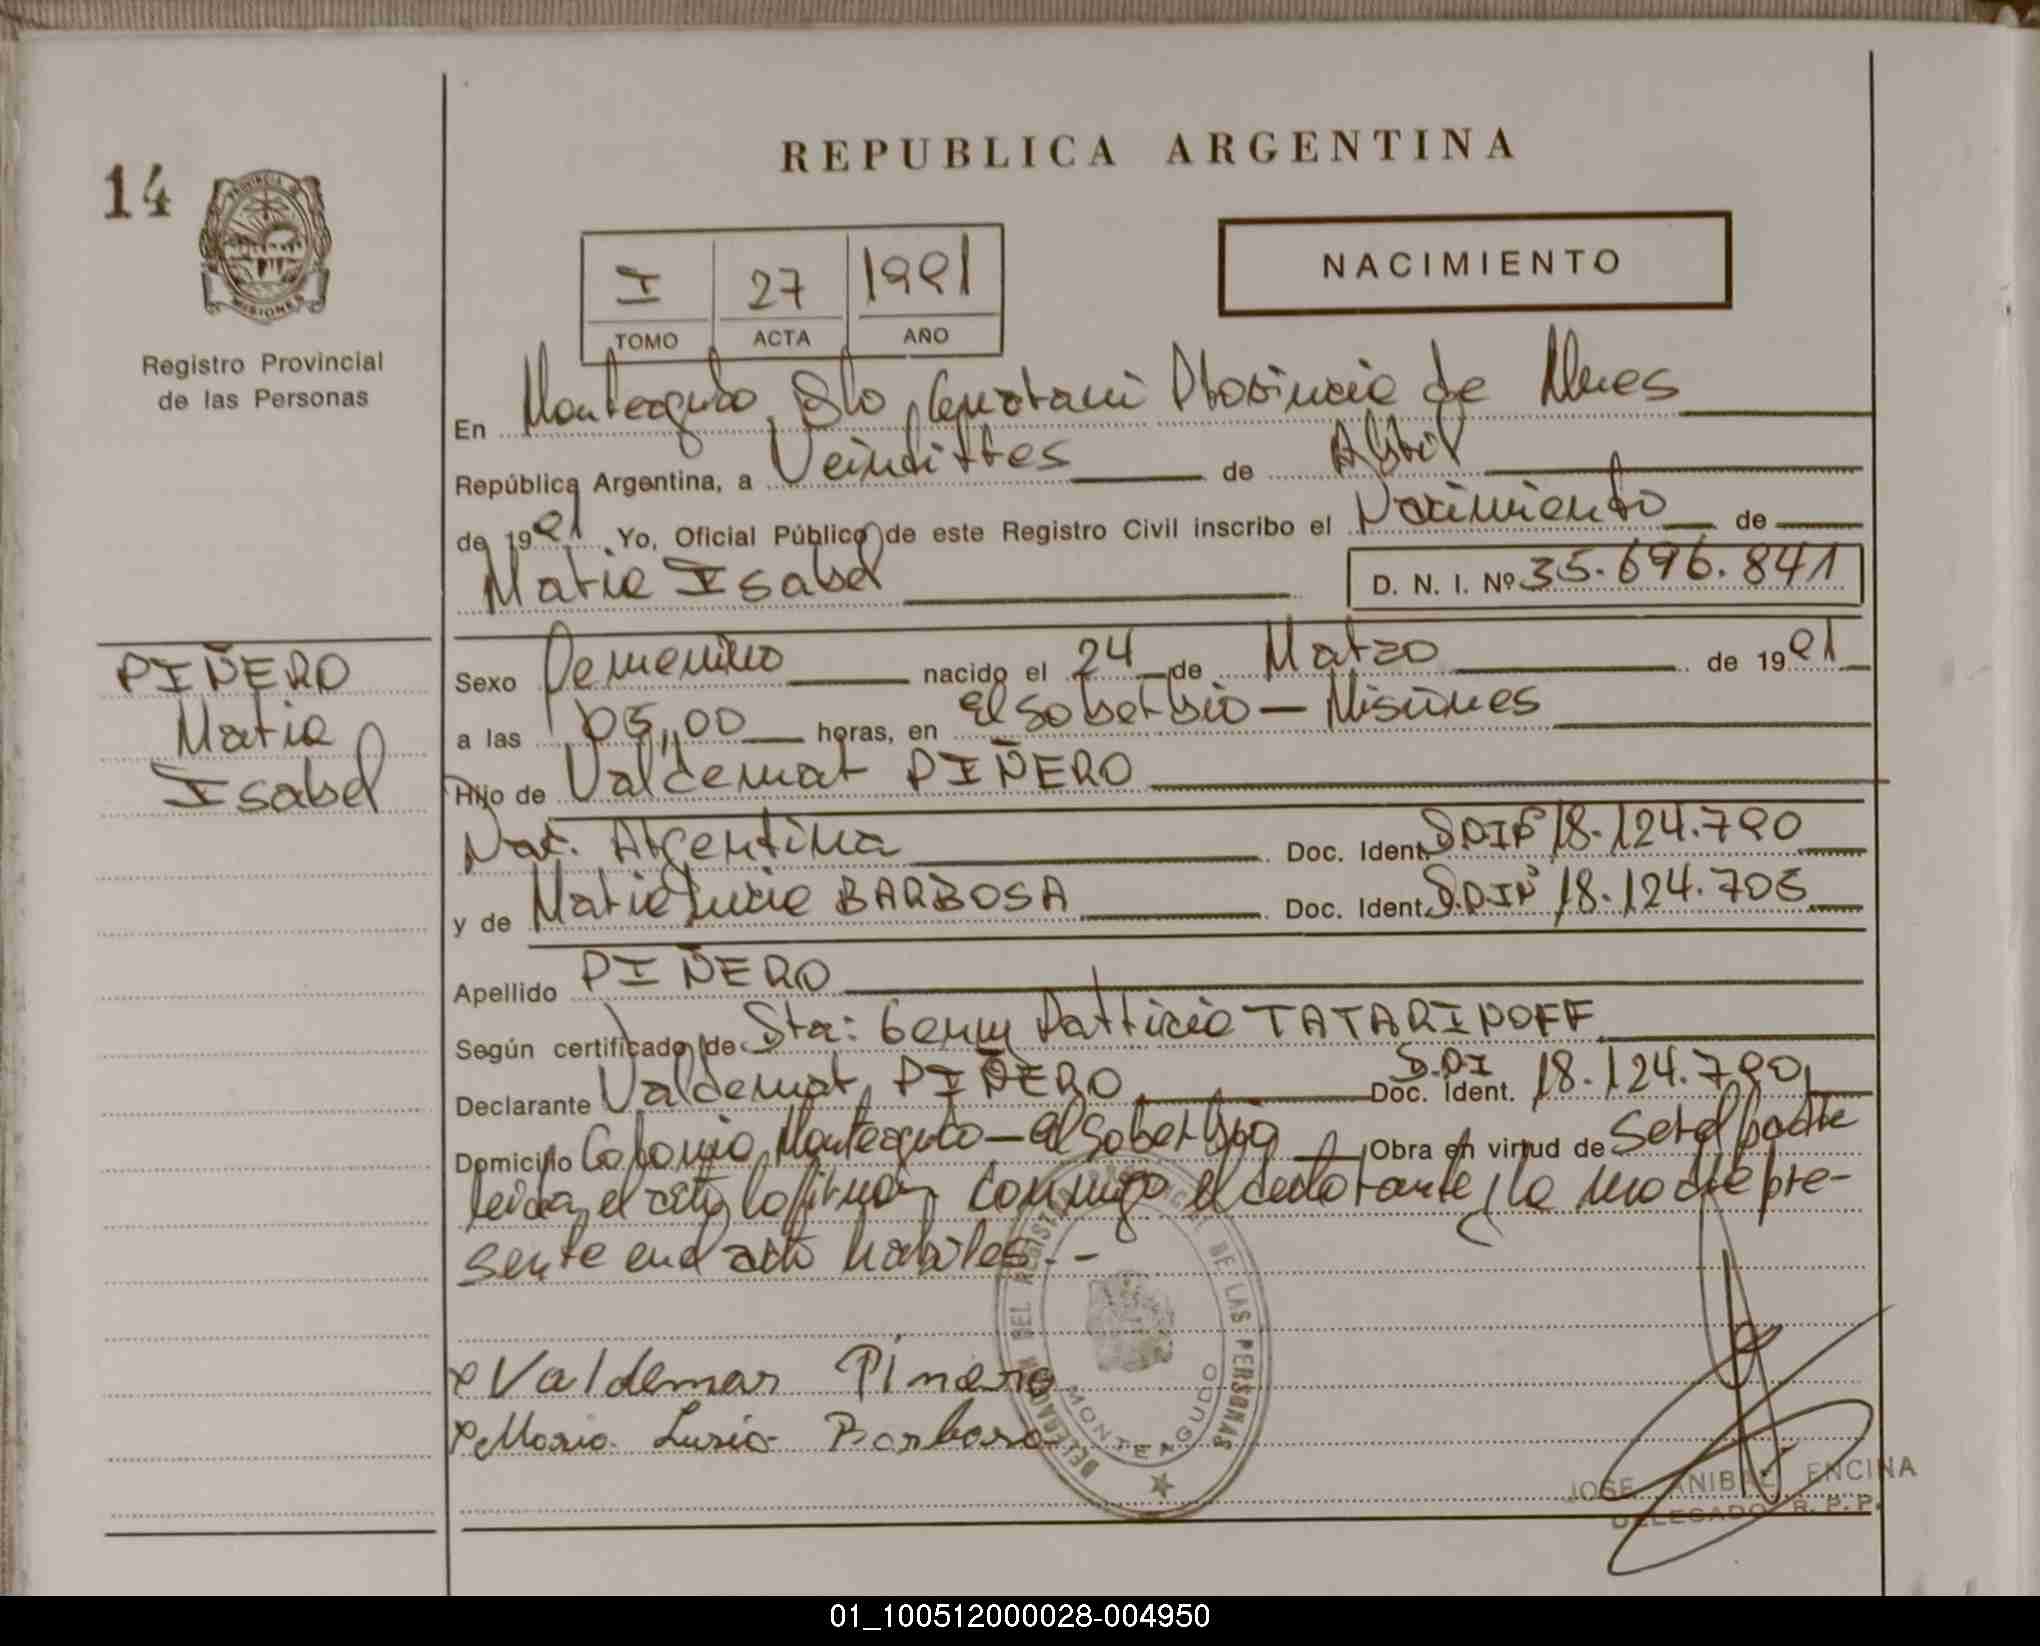 REPUBLICA ARGENTINA
14
PROVINCIA DE
MISIONES
Registro Provincial
de las Personas
NACIMIENTO
I 27 1991
TOMO ACTA AÑO
En Monteagudo Dto. Guarani Provincia de Mnes
República Argentina, a Veintitres de Abril
de 1991 Yo, Oficial Público de este Registro Civil inscribo el Nacimiento de
Maria Isabel D. N. I. Nº 35.696.841
PIÑERO
Maria
Isabel
Sexo Femenino nacido el 24 de Marzo de 1991
a las 05,00 horas, en El Soberbio - Misiones
Hijo de Valdemar PIÑERO
Nac. Argentina Doc. Ident. 18.124.790
y de Maria Lucia BARBOSA Doc. Ident. 18.124.705
Apellido PIÑERO
Según certificado de Sta: Genny Patricia TATARINOFF
Declarante Valdemar PIÑERO Doc. Ident. 18.124.790
Domicilio Colonia Monteagudo - El Soberbio Obra en virtud de Ser el padre
leida el acta la firman conmigo el declarante, la madre pre-
sente en el acto habiles. -
Valdemar Pinero
Maria Lusia Barbosa
DELEGACION DEL REGISTRO PROVINCIAL DE LAS PERSONAS
MONTEAGUDO
JOSE ANIBAL ENCINA
DELEGADO R. P. P.
01_100512000028-004950